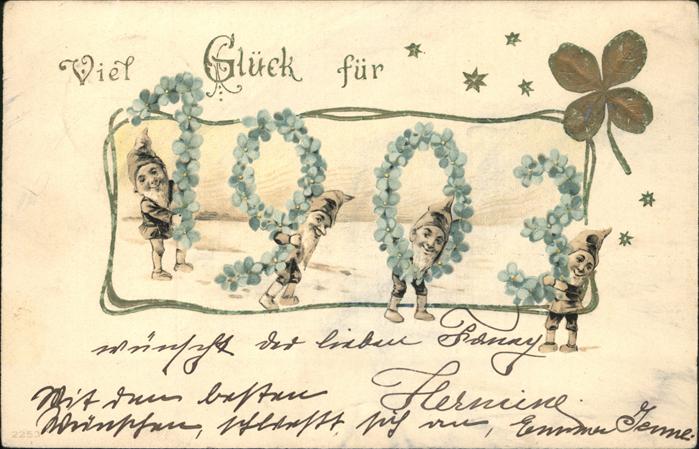 Viel Glück für
1903
wünscht der lieben Fanny
Hermine.
Mit den besten
Wünschen, schließt sich an, Emma
2253